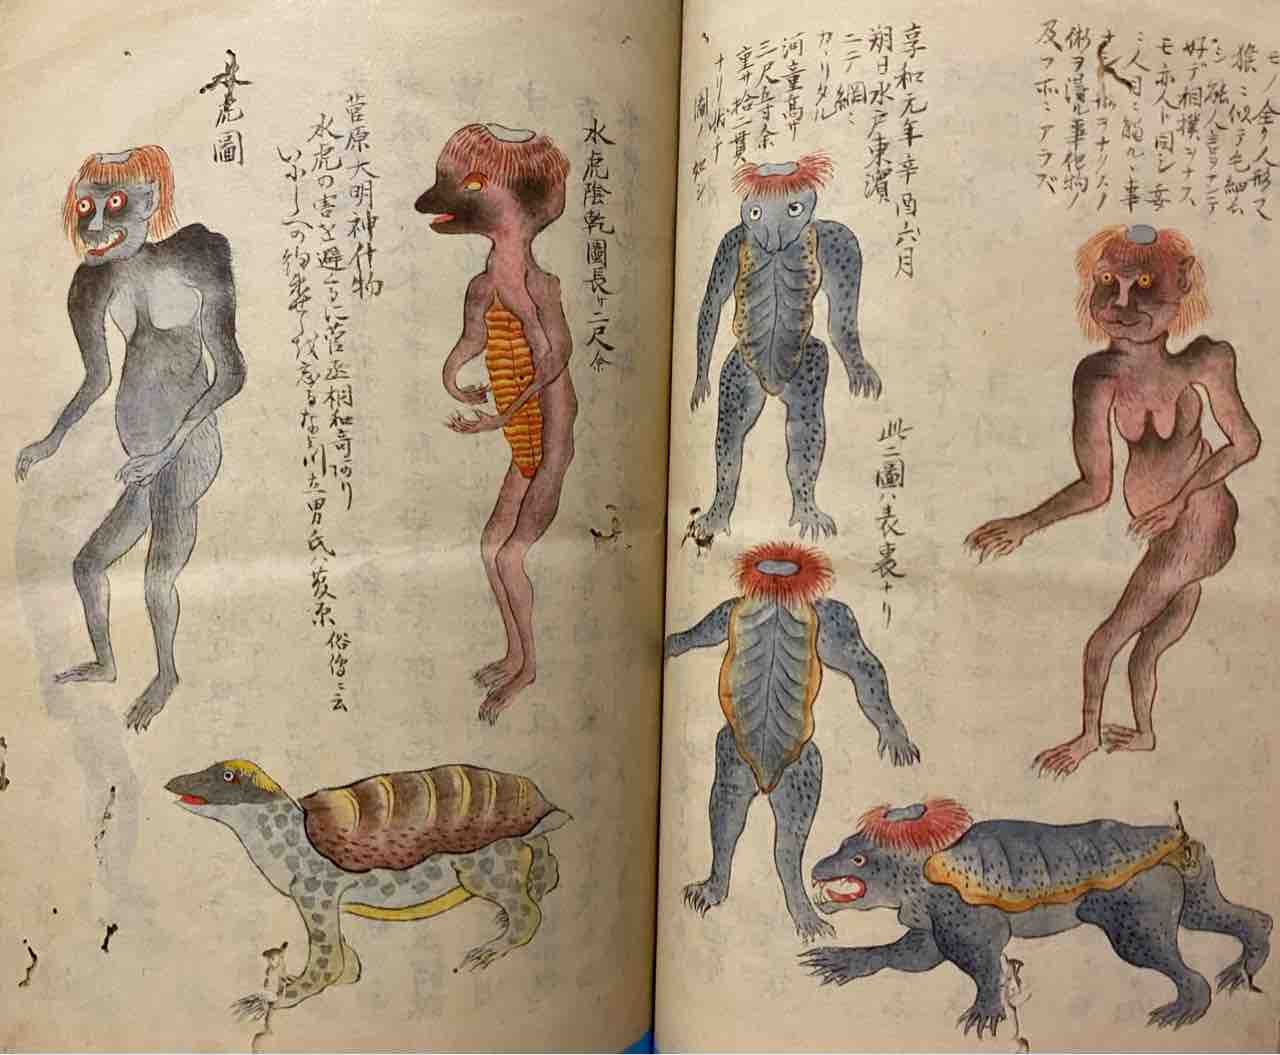 モノ全ク人形ニテ
猿ニ似テ毛細ニ
シ能人言ヲナシテ
好テ相撲ヲナス
モ亦人ト同シ妄
ニ人目ニ触ルヽ事
ナシ
術ヲ得ル事他物ノ
及フホトニアラズ
享和元年辛酉六月
朔日水戸東濱
ニテ網ニ
カヽリタル
河童高サ
三尺五寸余
重サ拾二貫
ナリ
圖ノ如シ
此二圖ハ表裏ナリ
水虎陰乾圖長サ二尺余
菅原大明神什物
水虎の害を避るに菅丞相和哥あり
いにしへの約束せしを忘るなよ川立男氏ハ菅原 俗傳ニ云
水虎圖